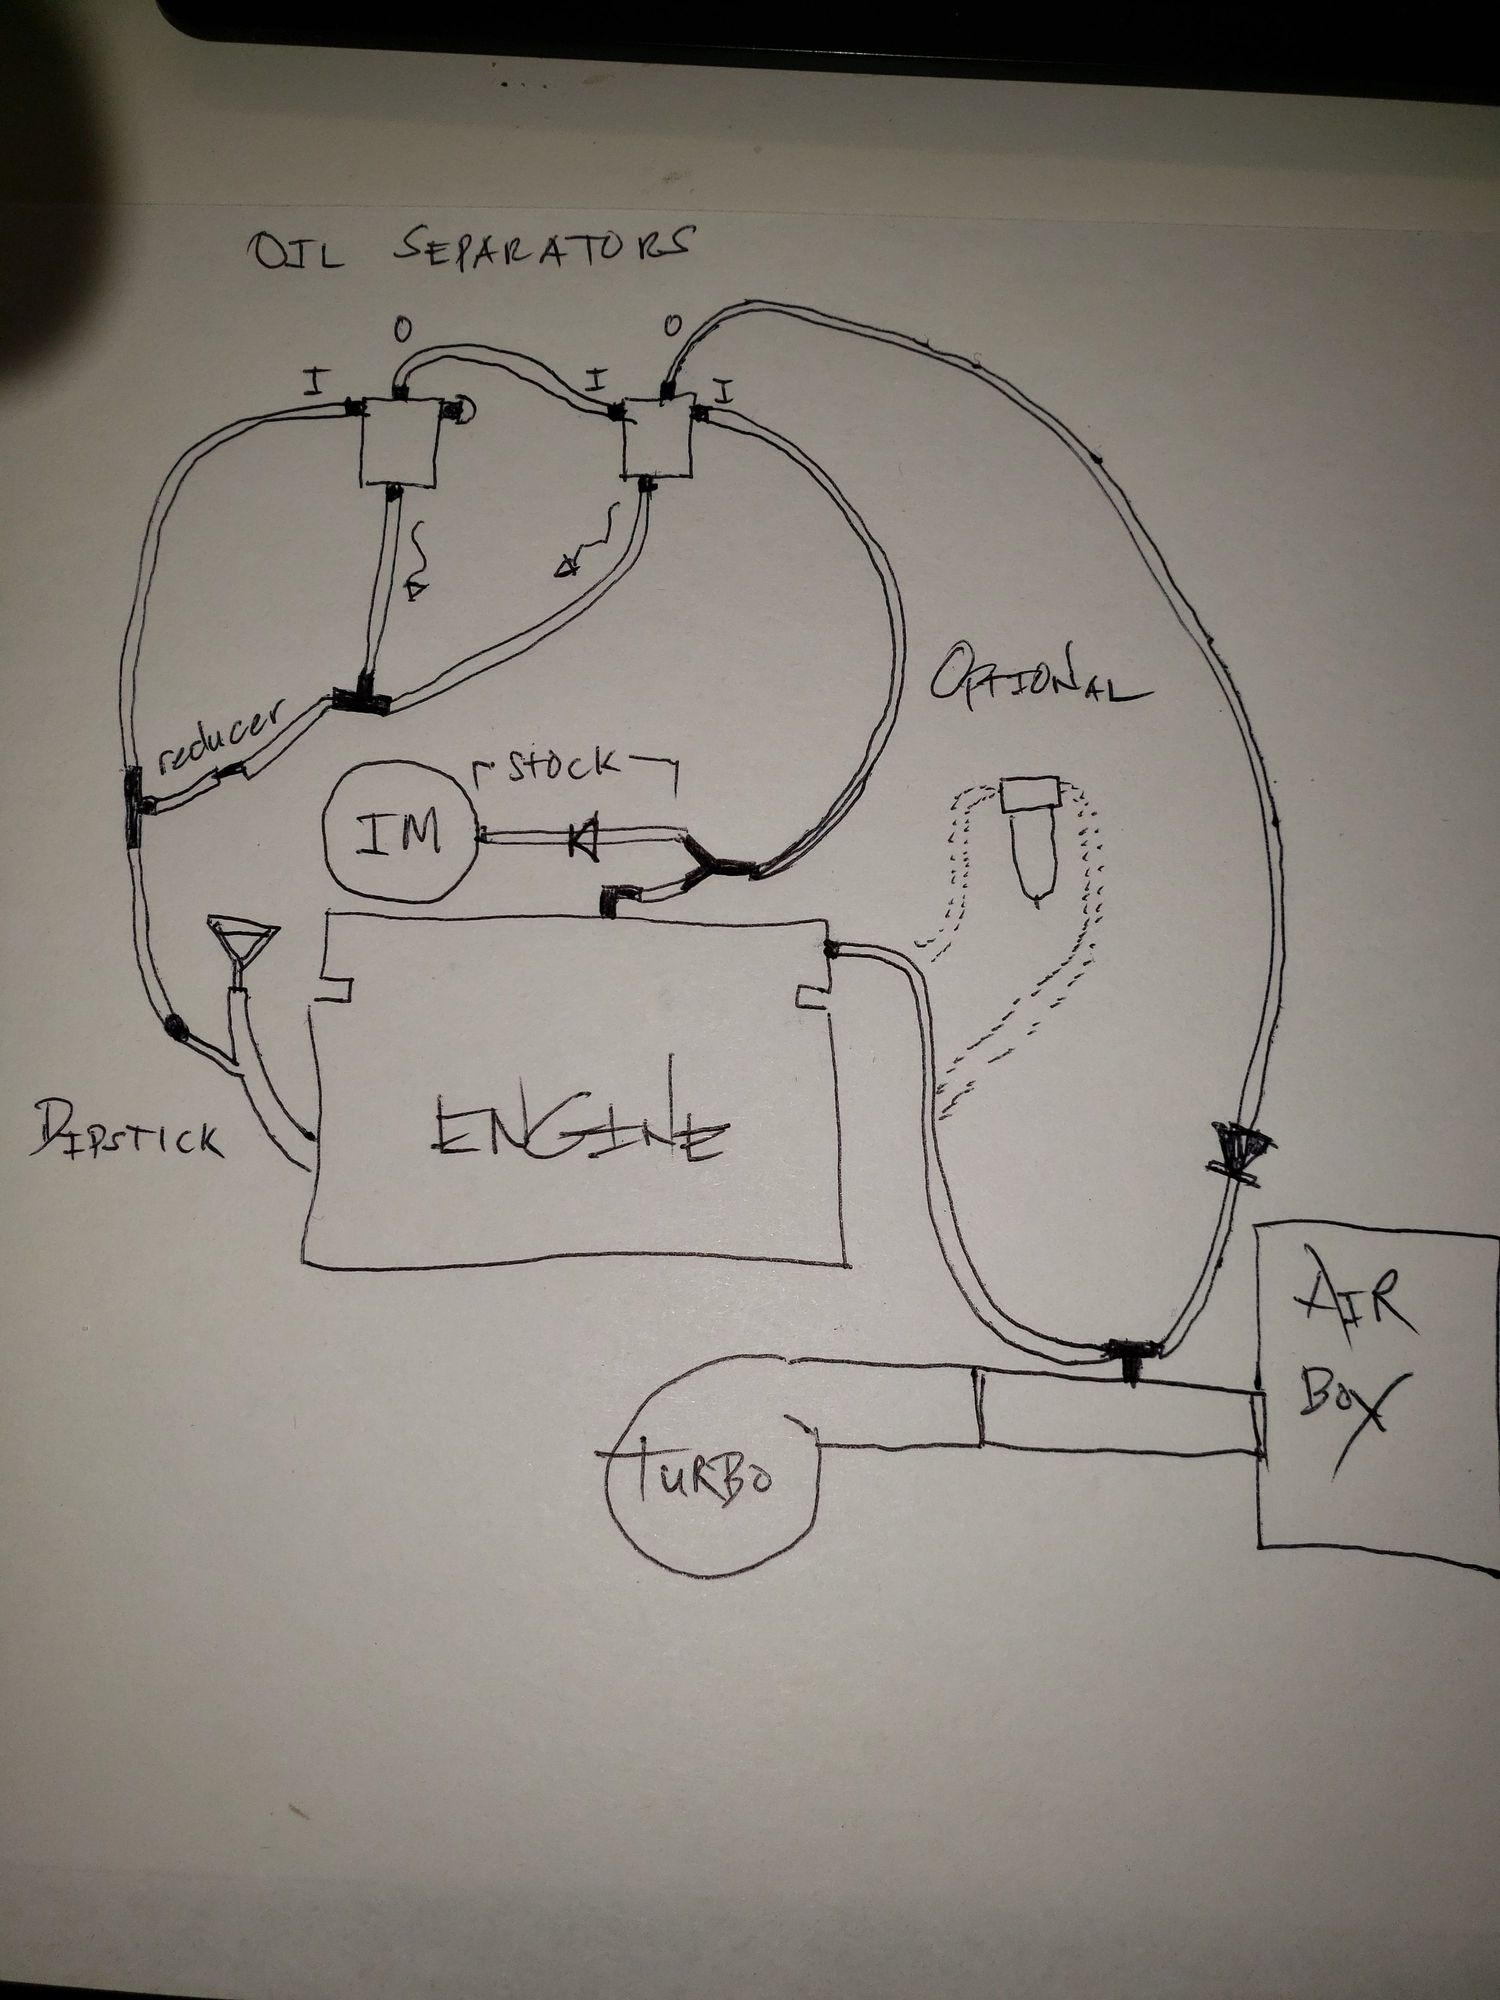 OIL SEPARATORS
O
O
I
I
I
OPTIONAL
reducer
STOCK
IM
DIPSTICK
ENGINE
AIR
BOX
TURBO